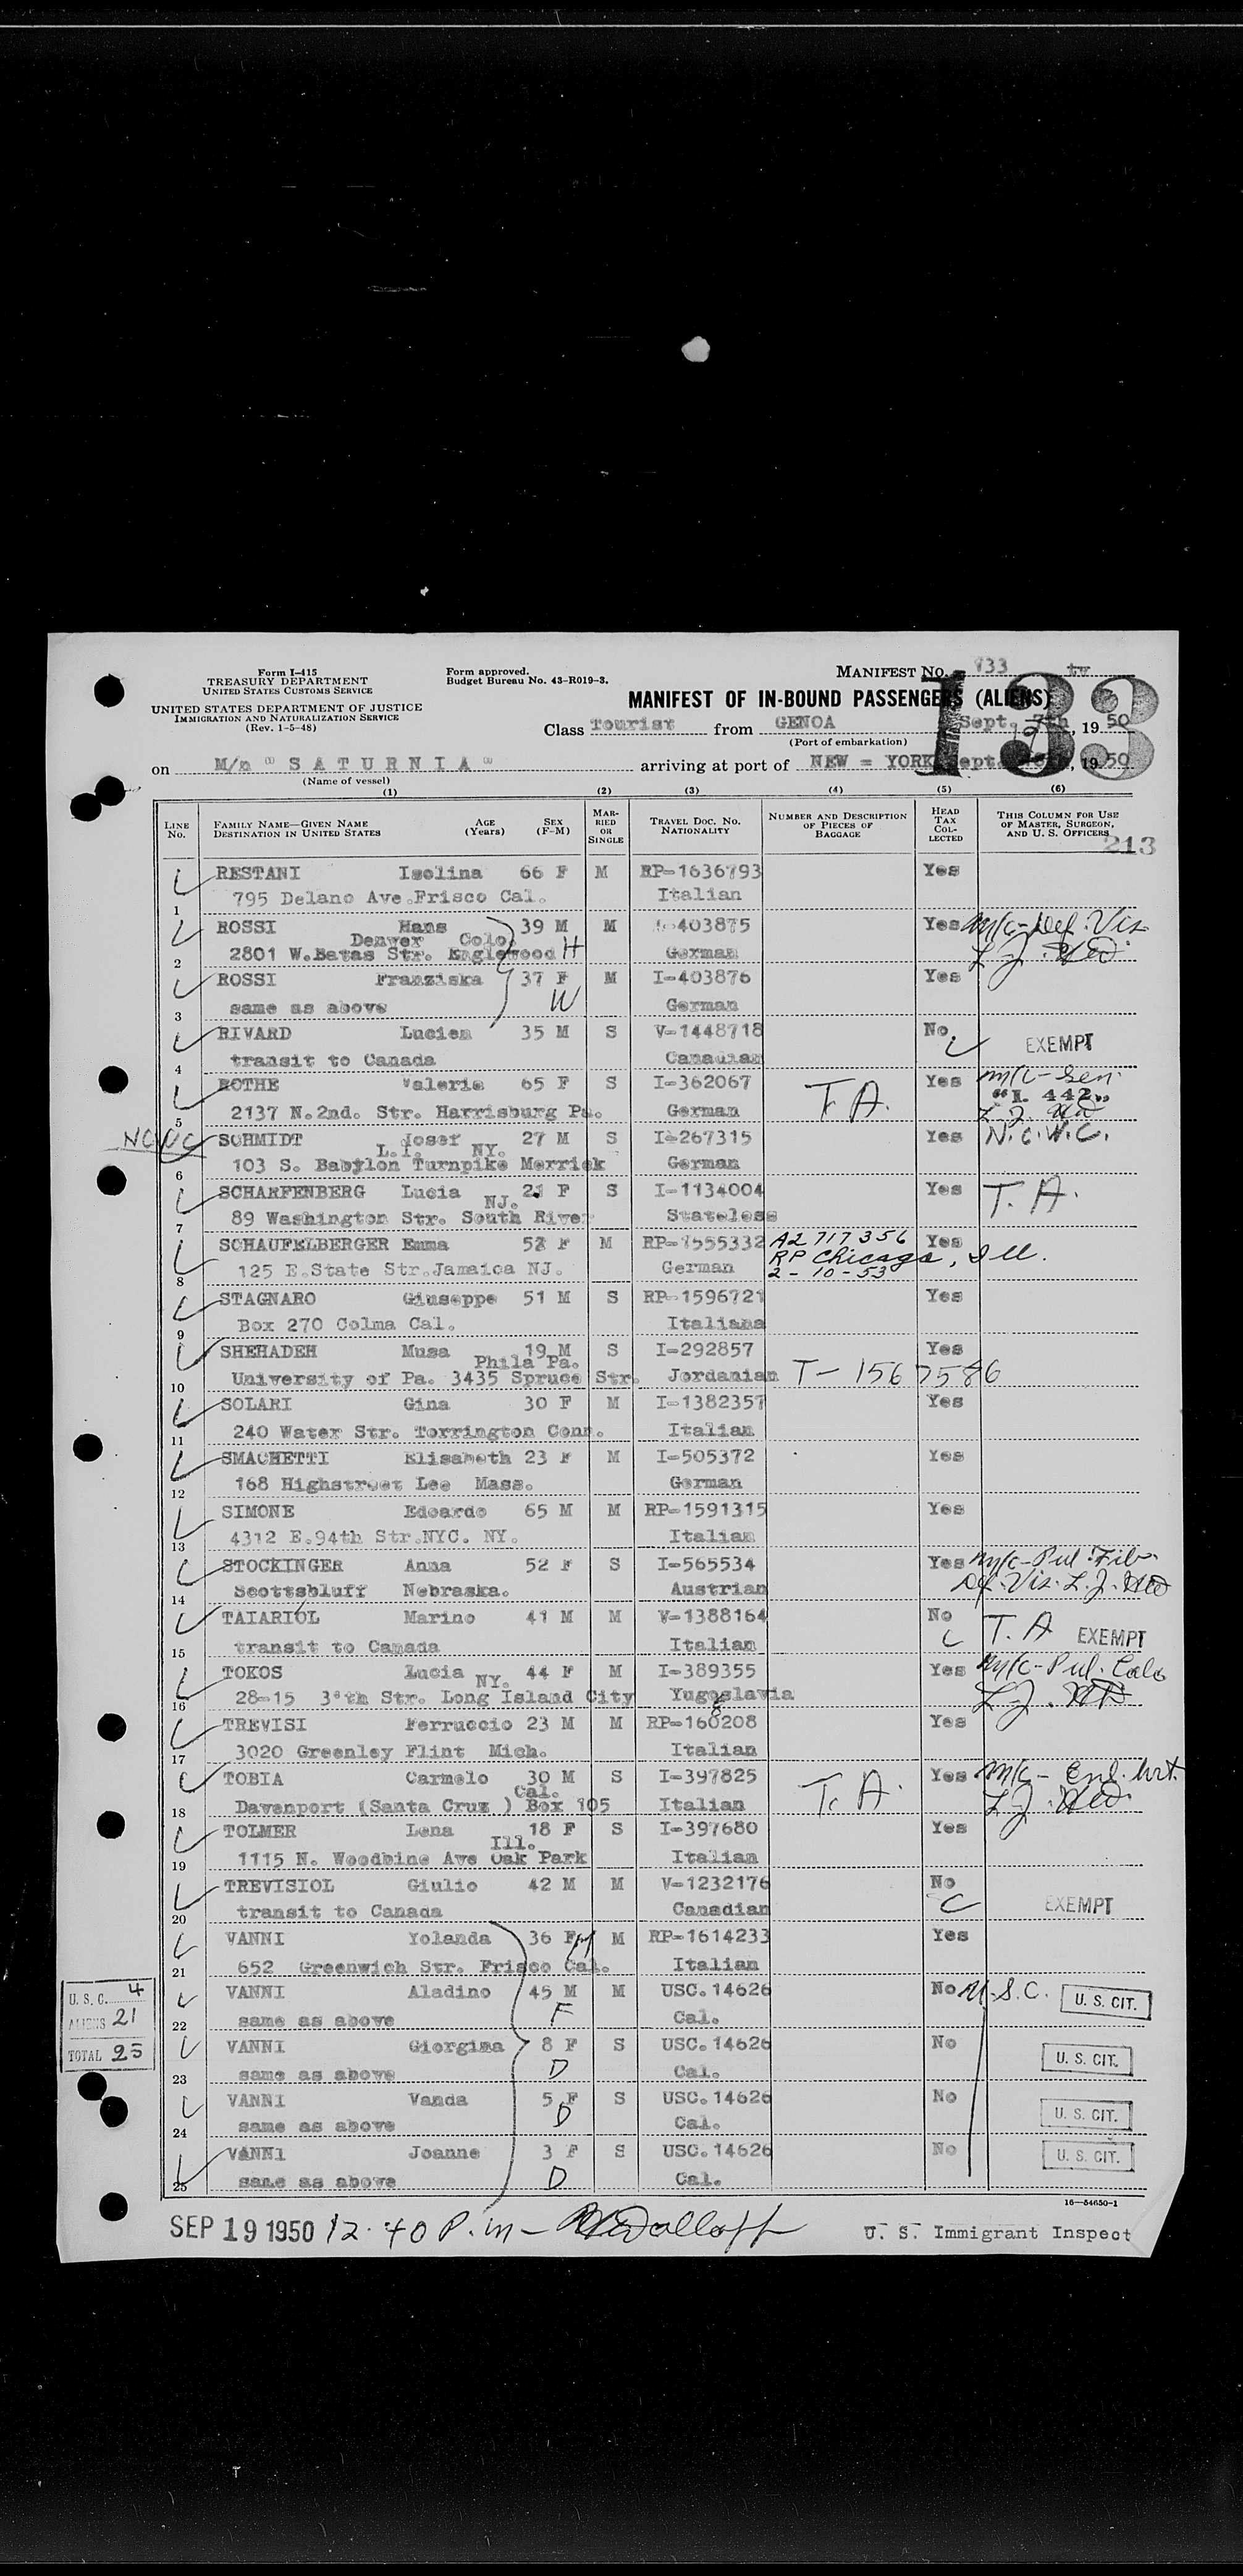 Form I-415
TREASURY DEPARTMENT
UNITED STATES CUSTOMS SERVICE
UNITED STATES DEPARTMENT OF JUSTICE
IMMIGRATION AND NATURALIZATION SERVICE
(Rev. 1-5-48)
Form approved.
Budget Bureau No. 43-R019-3.
MANIFEST NO. 133
133
MANIFEST OF IN-BOUND PASSENGERS (ALIENS)
Class Tourist from GENOA Sept. 7th, 1950
(Port of embarkation)
on M/n "SATURNIA" arriving at port of NEW = YORK Sept. 19, 1950
(Name of vessel)
(1) (2) (3) (4) (5) (6)
LINE No. FAMILY NAME—GIVEN NAME DESTINATION IN UNITED STATES AGE (Years) SEX (F-M) MARRIED OR SINGLE TRAVEL DOC. NO. NATIONALITY NUMBER AND DESCRIPTION OF PIECES OF BAGGAGE HEAD TAX COLLECTED THIS COLUMN FOR USE OF MASTER, SURGEON, AND U. S. OFFICERS
213
RESTANI Isolina 66 F M RP-1636793 Yes
1 795 Delano Ave.Frisco Cal. Italian
ROSSI Hans 39 M M 403875 Yes m/c-Def. Vis
Denver Colo.
2 2801 W.Batas Str. Englewood H German L. J.
ROSSI Franziska 37 F M I-403876 Yes
3 same as above W German
RIVARD Lucien 35 M S V-1448718 No EXEMPT
4 transit to Canada Canadian
ROTHE Valerie 65 F S I-362067 T.A. Yes m/c-Sen.
5 2137 N.2nd. Str. Harrisburg Pa. German "R. 442"
NCWC SCHMIDT Josef 27 M S I-267315 Yes N.C.W.C.
L.I. NY.
6 103 S. Babylon Turnpike Merrick German
SCHARFENBERG Lucia 21 F S I-1134004 Yes T.A.
NJ.
7 89 Washington Str. South River Stateless
SCHAUFELBERGER Emma 52 F M RP-1555332 A2 717 356 Yes
RP Chicago, Ill.
8 125 E.State Str.Jamaica NJ. German 2-10-53
STAGNARO Giuseppe 51 M S RP-1596721 Yes
9 Box 270 Colma Cal. Italiana
SHEHADEH Musa 19 M S I-292857 Yes
Phila Pa.
10 University of Pa. 3435 Spruce Str. Jordanian T-1567586
SOLARI Gina 30 F M I-1382357 Yes
11 240 Water Str. Torrington Conn. Italian
SMACHETTI Elisabeth 23 F M I-505372 Yes
12 168 Highstreet Lee Mass. German
SIMONE Edoardo 65 M M RP-1591315 Yes
13 4312 E.94th Str.NYC. NY. Italian
STOCKINGER Anna 52 F S I-565534 Yes m/c-Pul. Fib.
14 Scottsbluff Nebraska. Austrian Def. Vis. L. J.
TAIARIOL Marino 41 M M V-1388164 No T.A EXEMPT
15 transit to Canada Italian
TOKOS Lucia 44 F M I-389355 Yes m/c-Pul. Calc
NY.
16 28-15 3 th Str. Long Island City Yugoslavia L. J.
TREVISI Ferruccio 23 M M RP-160208 Yes
8
17 3020 Greenley Flint Mich. Italian
TOBIA Carmelo 30 M S I-397825 T. A. Yes m/c-
Cal.
18 Davenport (Santa Cruz ) Box 105 Italian L. J.
TOLMER Lena 18 F S I-397680 Yes
Ill.
19 1115 N. Woodbine Ave Oak Park Italian
TREVISIOL Giulio 42 M M V-1232176 No EXEMPT
20 transit to Canada Canadian
VANNI Yolanda 36 F M M RP-1614233 Yes
21 652 Greenwich Str. Frisco Cal. Italian
VANNI Aladino 45 M M USC.14626 No U.S.C. U. S. CIT.
22 same as above F Cal.
VANNI Giorgina 8 F S USC.14626 No U. S. CIT.
23 same as above D Cal.
VANNI Vanda 5 F S USC.14626 No U. S. CIT.
24 same as above D Cal.
VANNI Joanne 3 F S USC.14626 No U. S. CIT.
25 same as above D Cal.
U. S. C. 4
ALIENS 21
TOTAL 25
16—54650-1
SEP 19 1950 12.40 P.m- U. S. Immigrant Inspect